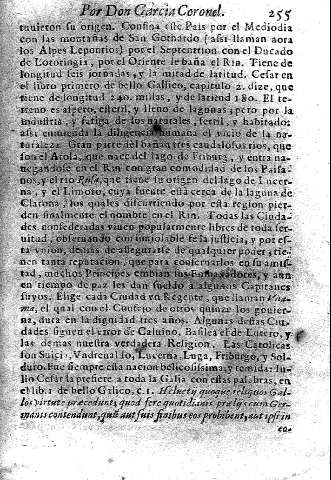 Por Don Garcia Coronel. 255
tuuieron su origen. Confina este Pais por el Mediodia
con las montañas de San Gothardo (assi llaman aora
los Alpes Lepontios) por el Septentrion con el Ducado
de Lotoringia, por el Oriente le baña el Rin. Tiene de
longitud seis jornadas, y la mitad de latitud. Cesar en
el libro primero de bello Gallico, capitulo 2. dize, que
tiene de longitud 240. millas, y de latitud 180. El te-
rreno es aspero, esteril, y lleno de lagunas; pero por la
industria, y fatiga de los naturales, fertil, y habitado;
assi enmienda la diligencia humana el vicio de la na-
turaleza. Gran parte del bañan tres caudalosos rios, que
son el Arola, que nace del lago de Friburg, y entra na-
uegandose en el Rin con gran comodidad de los Paisa-
nos, y el rio Rusa, que tiene su origen del lago de Lucer-
na, y el Limoto, cuya fuente està cerca de la laguna de
Clarona, los quales discurriendo por esta region pier-
den finalmente el nombre en el Rin. Todas las Ciuda-
des confederadas viuen popularmente libres de toda ser-
uitud, obseruando con inuiolable fe la justicia, y por es-
ta vnion, demàs de assegurarse de qualquier poder, tie-
nen tanta reputacion, que para conseruarlos en su amis-
tad, muchos Principes embian sus Embaxadores, y aun
en tiempo de paz les dan sueldo a algunos Capitanes
suyos. Elige cada Ciudad vn Regente, que llaman
el qual con el Consejo de otros quinze los gouier-
na, dura en la dignidad tres años. Algunas destas Ciu-
dades siguen el error de Caluino, Basilea el de Lutero, y
las demas nuestra verdadera Religion. Las Catolicas
son Suici, Vndreualso, Lucerna, Luga, Friburgo, y Sol-
duro. Fue siempre esta nacion belicosissima, y temida: Iu-
lio Cesar la prefiere a toda la Galia con estas palabras, en
el lib. 1. de bello Galico, c. 1. Helvetij quoque reliquos Gal-
los virtute præcedunt, quod fere quotidianis prælijs cum Ger-
manis contendunt, quū aut suis finibus eos prohibent, aut ipsi in
eo-